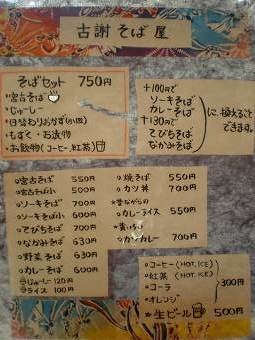 古謝そば屋
そばセット 750円
•宮古そば
•じゅーしー
•日替わりおかず(小皿)
•もずく・お漬物
•お飲物(コーヒー、紅茶)
+100円で
ソーキそば
カレーそば
+130円で
てびちそば
なかみそば
に、換えることできます。
•宮古そば 550円
•宮古そば小 500円
•ソーキそば 700円
•ソーキそば小 600円
•てびちそば 700円
•なかみそば 630円
•野菜そば 630円
•カレーそば 600円
じゅーしー 120円
ライス 100円
•焼きそば 550円
•カツ丼 700円
•昔ながらの
カレーライス 550円
•黄いろい
カツカレー 700円
•コーヒー(HOT.ICE)
•紅茶(HOT.ICE)
•コーラ
•オレンジ
300円
生ビール 500円